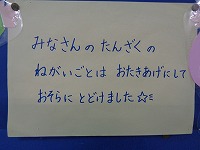 みなさんの たんざくの
ねがいごとは おたきあげにして
おそらに とどけました☆ミ